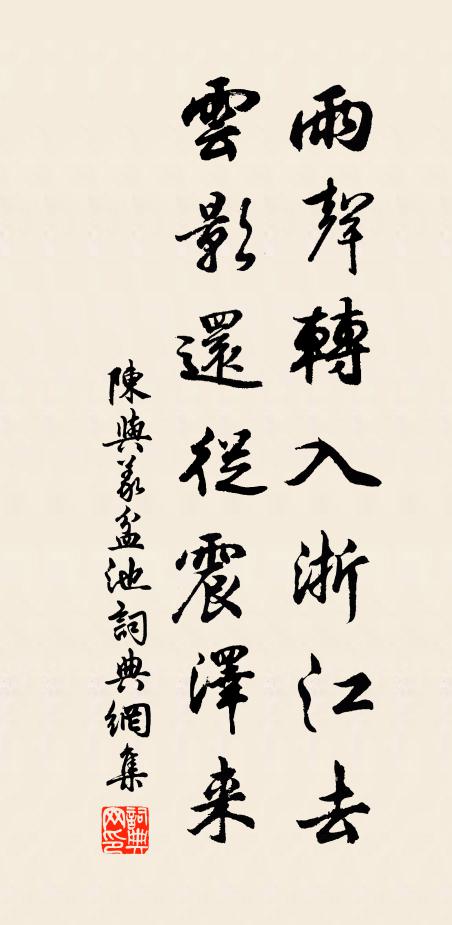 雨聲轉入浙江去
雲影還從震澤来
陳與義盆池詞典網集
詞典网印